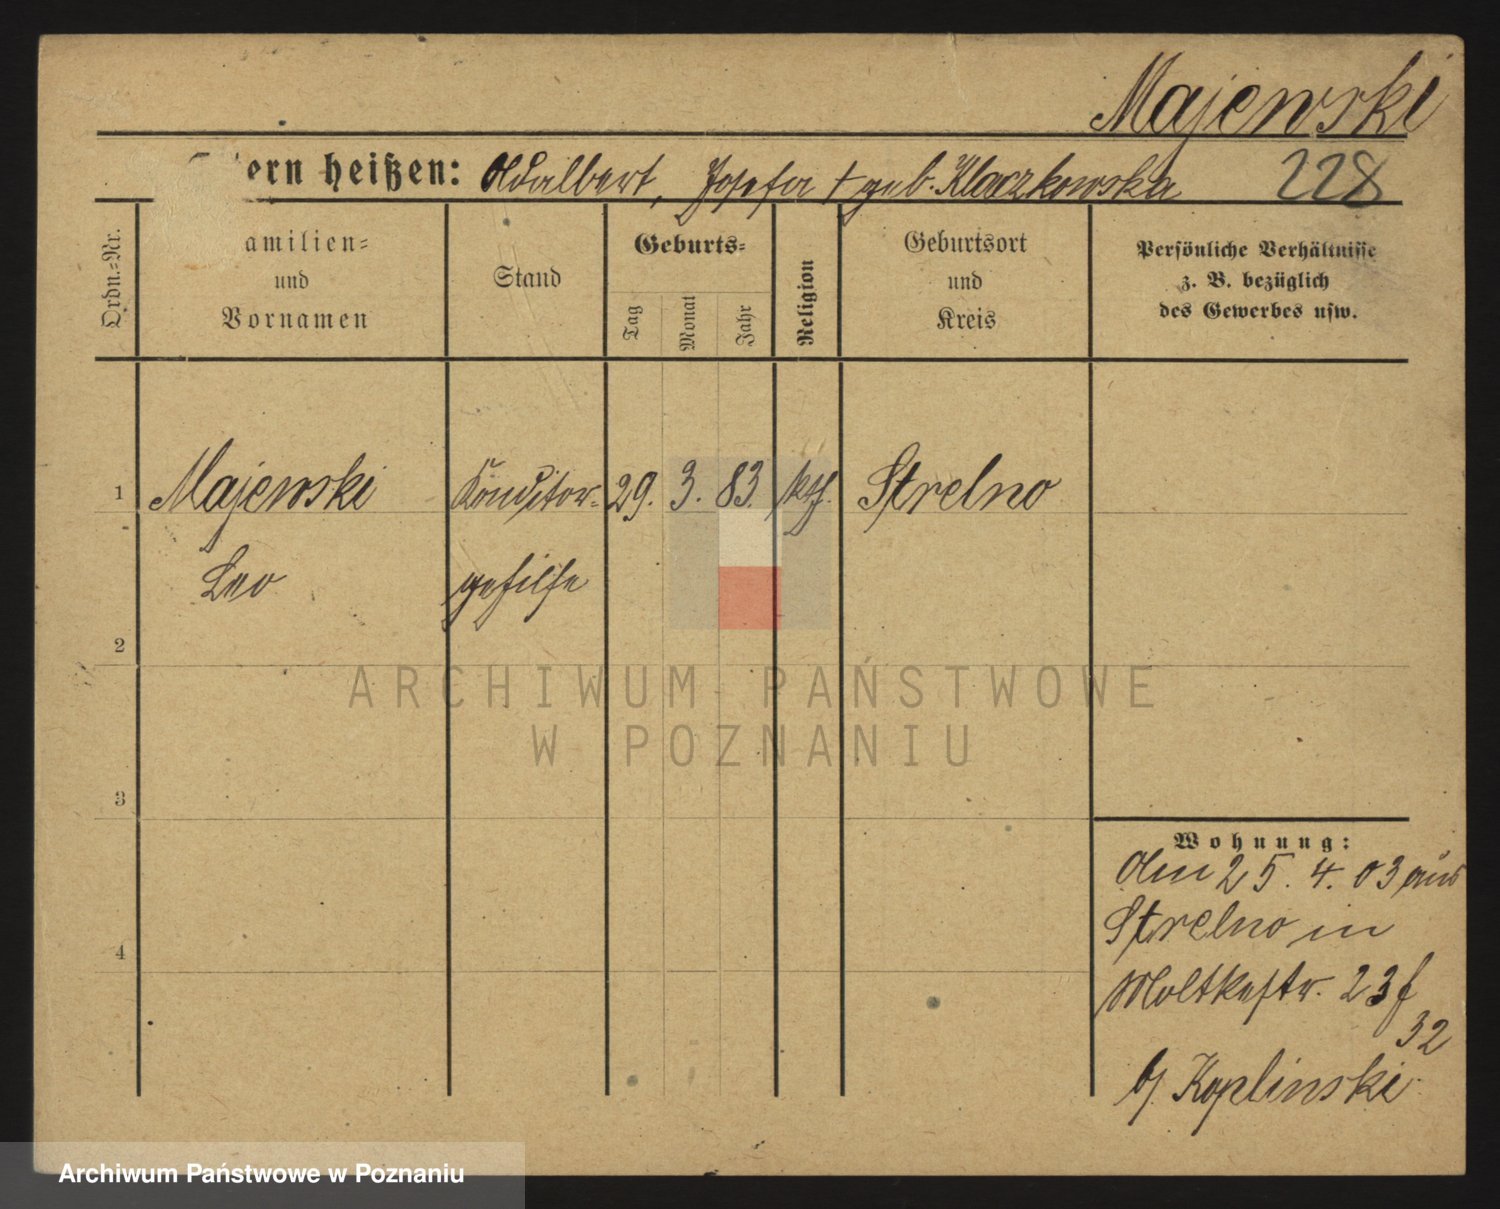 Majewski
ern heißen: Adalbert, Josefa † geb. Klaczkowska 228
Ordn.=Nr.
amilien=
und
Vornamen
Stand
Geburts=
Tag
Monat
Jahr
Religion
Geburtsort
und
Kreis
Persönliche Verhältnisse
z. B. bezüglich
des Gewerbes usw.
1 Majewski Konditor= 29. 3. 83. kth. Strelno
Leo gehilfe
2
ARCHIWUM PAŃSTWOWE
W POZNANIU
3
4
Wohnung:
Am 25. 4. 03 aus
Strelno in
Moltkestr. 23 f
32
b/ Koplinski
Archiwum Państwowe w Poznaniu